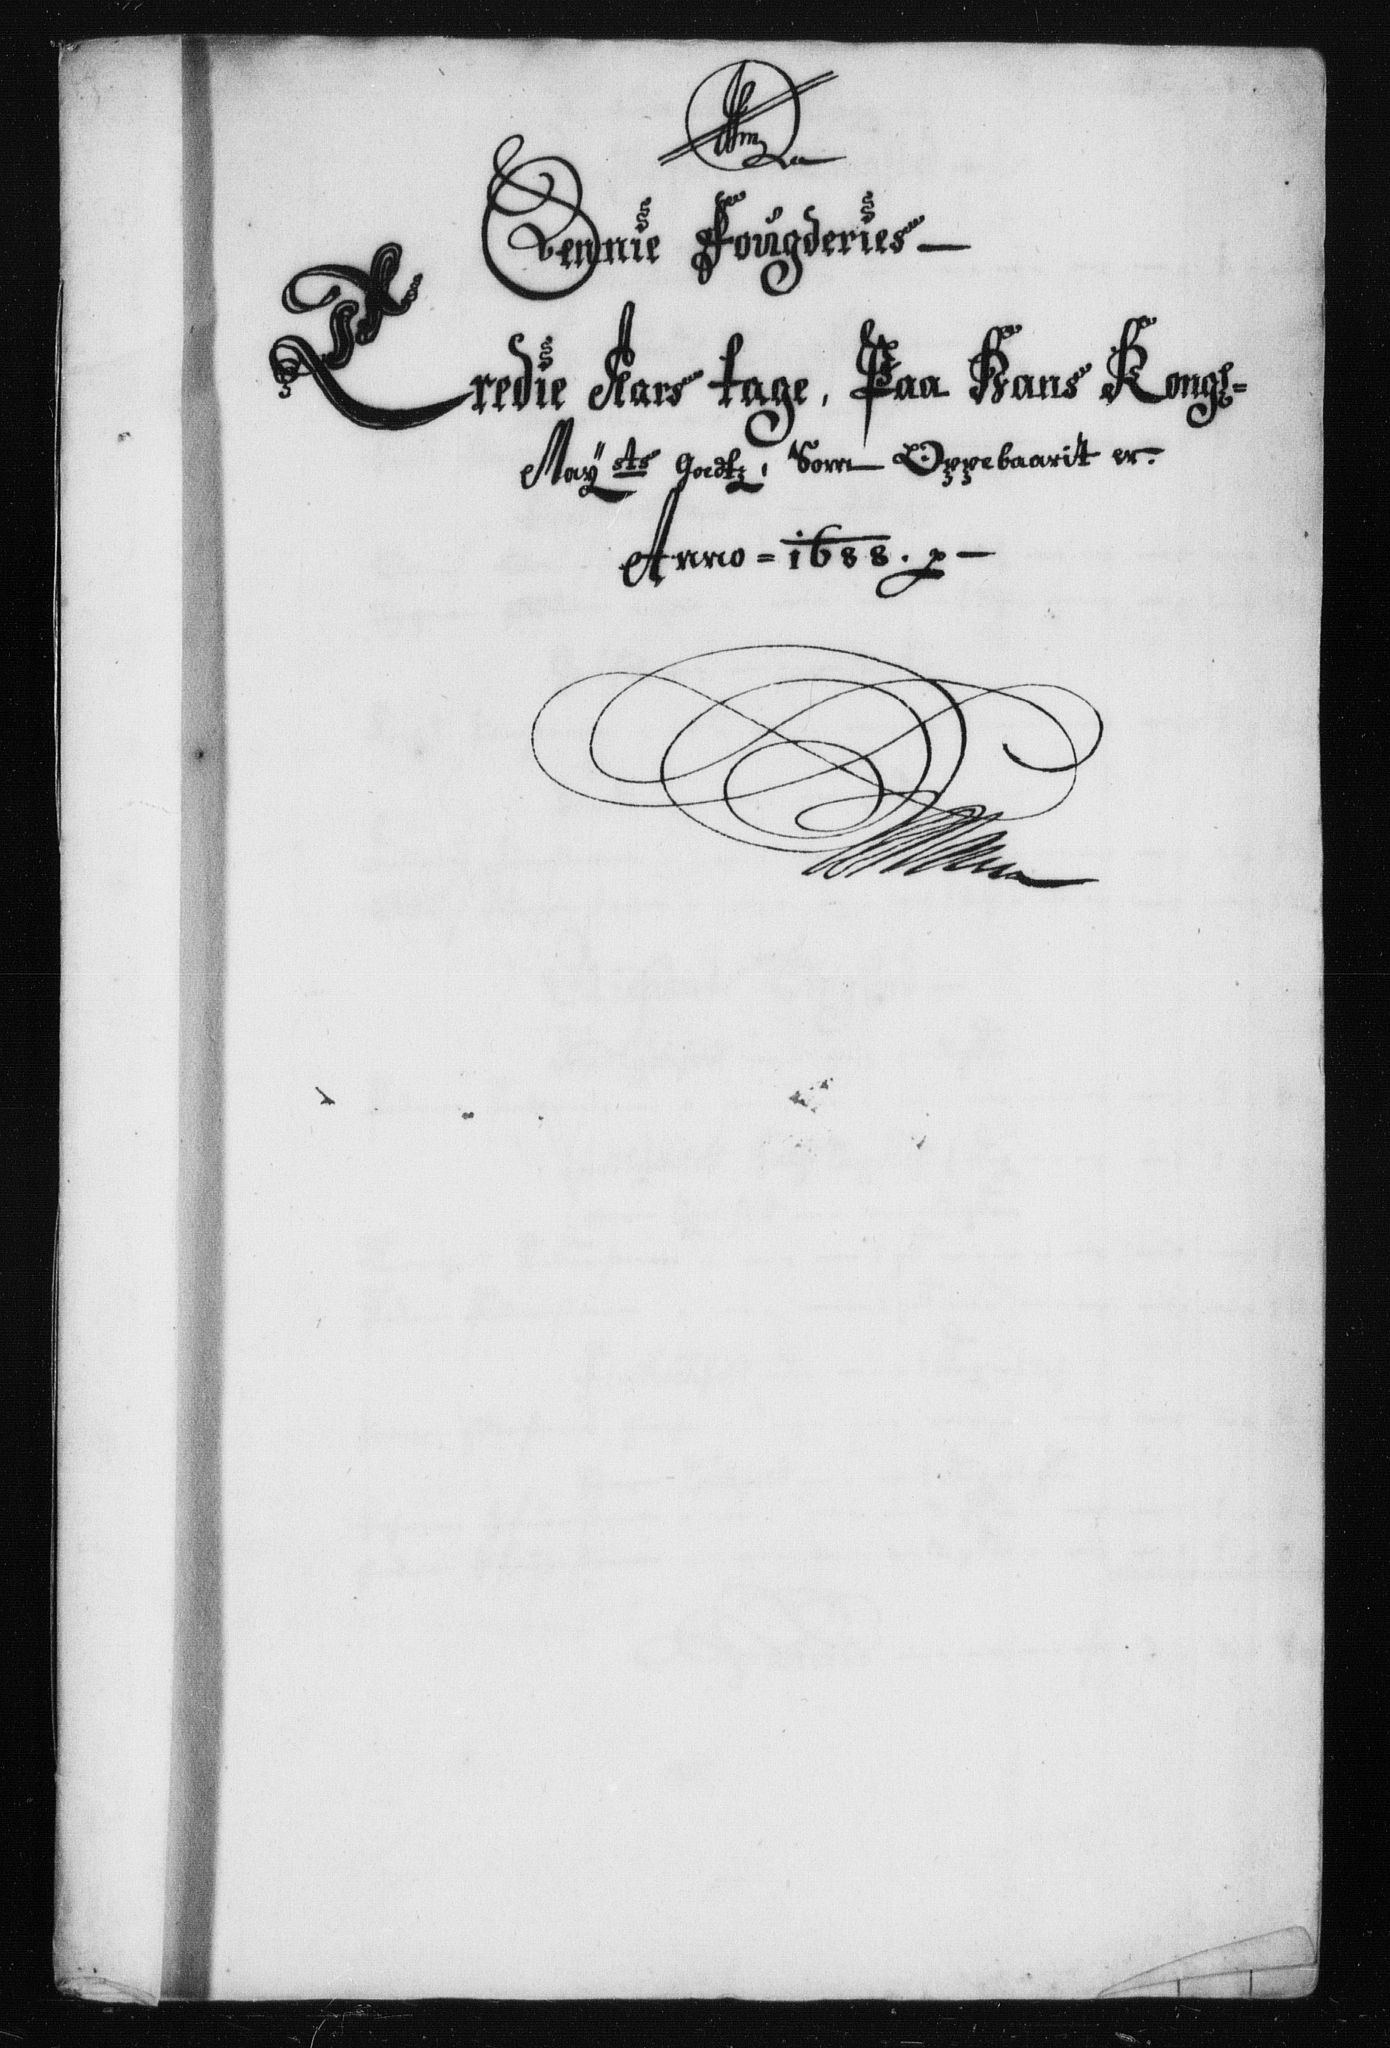 Sennie Fougderies
Tredie Aars tage, Paa Hans Kongl=
May:sts Goedtz, Som Oppebaarit er.
Anno = 1688.